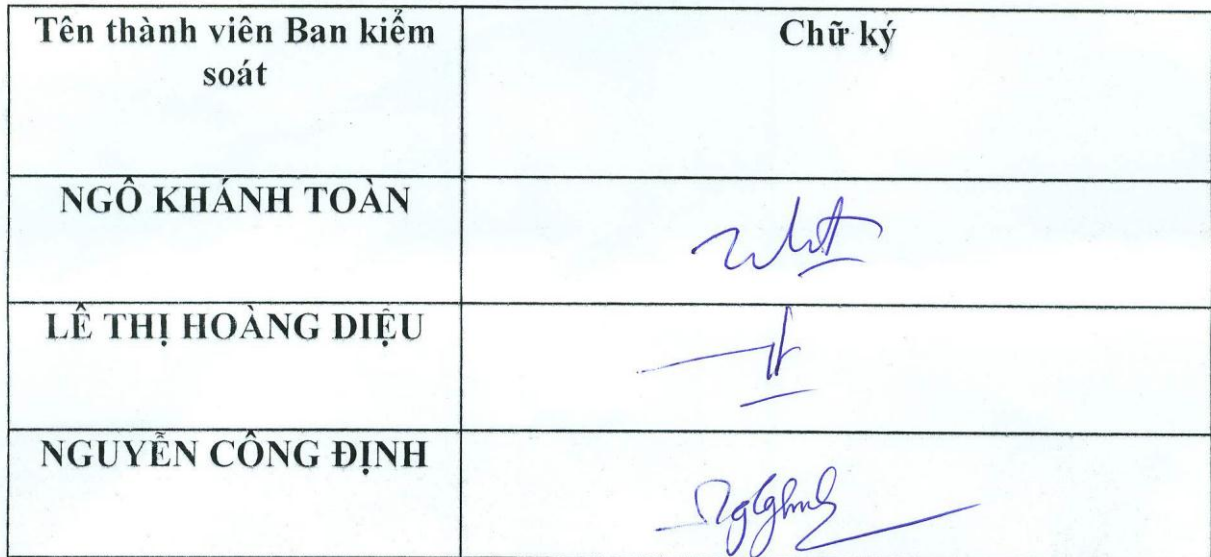 Tên thành viên Ban kiểm
soát
Chữ ký
NGÔ KHÁNH TOÀN
LÊ THỊ HOÀNG DIỆU
NGUYỄN CÔNG ĐỊNH